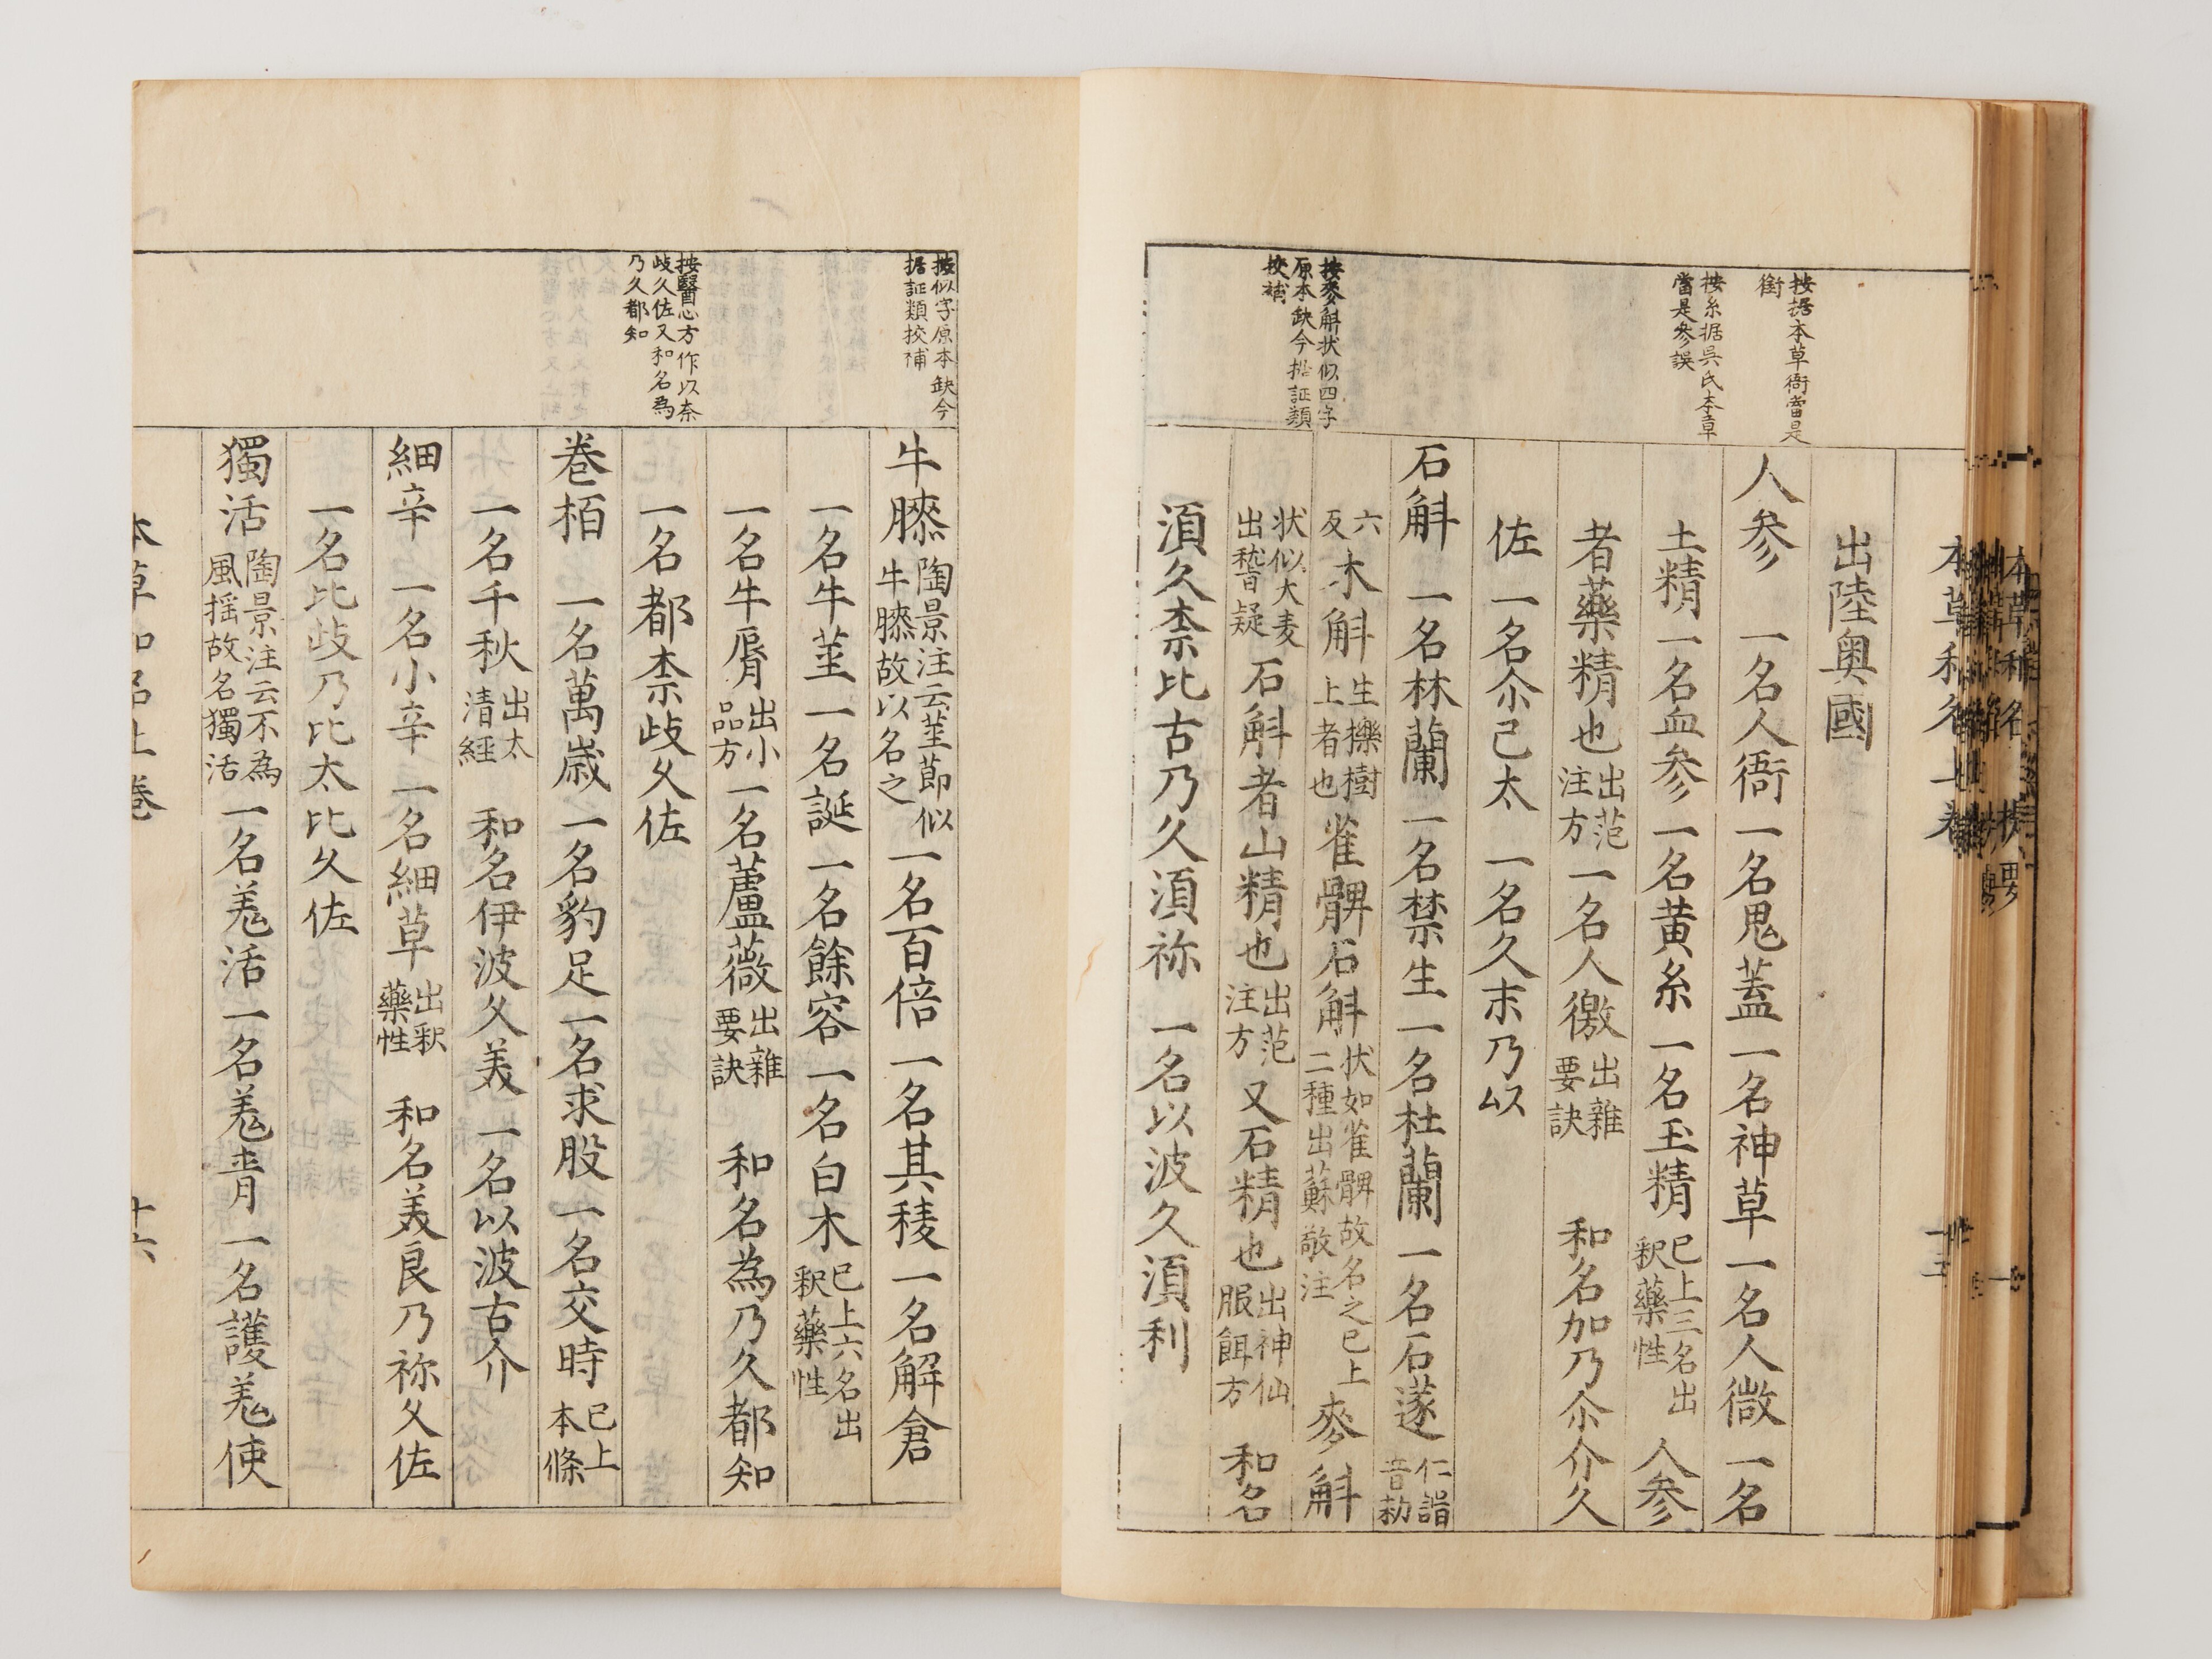 按據本草衙當是
銜
按糸据吳氏本草
當是参誤
按麥斛状似四字
原本缺今据証類
挍補
出陸奥國
人参　一名人衙　一名鬼蓋一名神草一名人微一名
土精一名血参一名黄糸一名玉精 已上三名出 釈藥性 人参
者藥精也 出范 注方 一名人徼 出雜 要訣 和名加乃尒介久
佐　一名尒己太　一名久末乃以
石斛　一名林蘭一名禁生一名杜蘭一名石蓫 仁諝 音勑
六 反 木斛 生擽樹 上者也 雀髀石斛 状如雀髀故名之已上 二種出蘇敬注 麥斛
状似大麦 出嵇疑 石斛者山精也 出范 注方 又石精也 出神仙 服餌方 和名
須久柰比古乃久須祢　一名以波久須利
按似字原本缺今
据証類挍補
按醫心方作以奈
歧久佐又和名為
乃久都知
牛膝 陶景注云莖節似 牛膝故以名之 一名百倍　一名其稜一名解倉
一名牛莖一名誕一名餘容一名白木 已上六名出 釈藥性
一名牛脣 出小 品方 一名蘆薇 出雜 要訣 和名為乃久都知
一名都柰歧久佐
巻栢　一名萬歳一名豹足一名求股一名交時 已上 本條
一名千秋 出太 清経 和名伊波久美　一名以波古介
細辛　一名小辛一名細草 出釈 藥性 和名美良乃祢久佐
一名比歧乃比太比久佐
獨活 陶景注云不為 風揺故名獨活 一名羗活一名羗青一名護羗使
本草和名上巻　十六